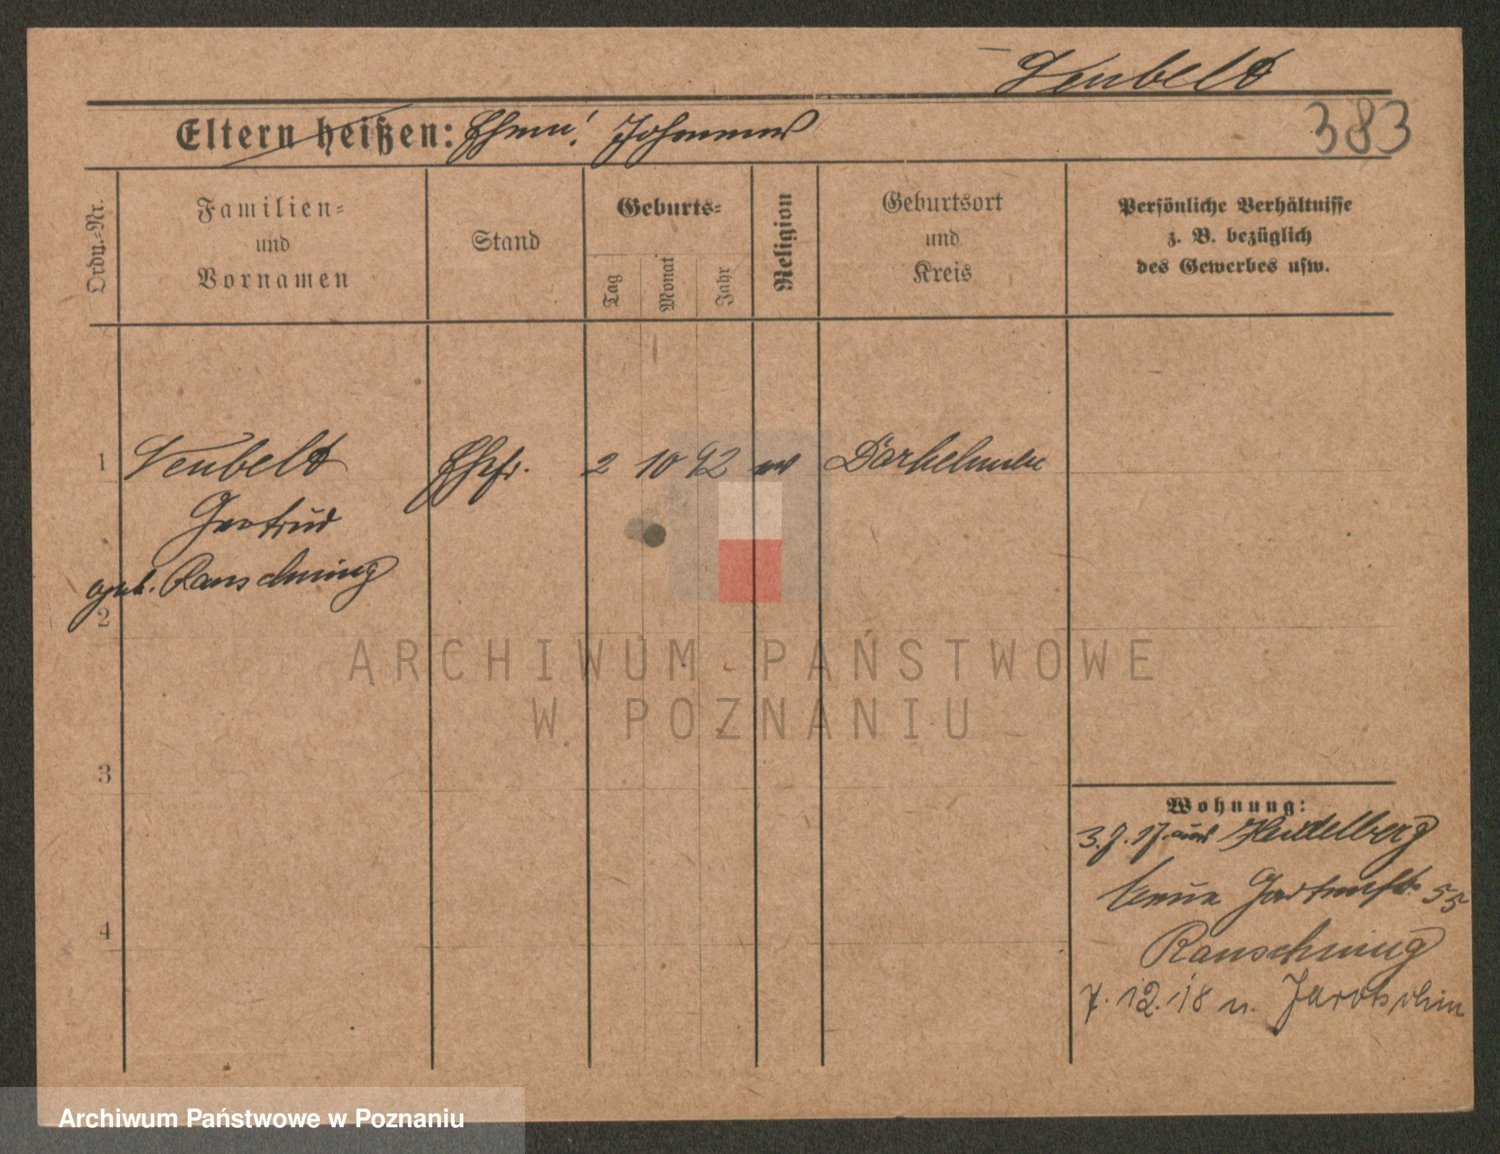 Neubelt
Eltern heißen: Ehem: Johannes
383
Ordn.-Nr.
Familien-
und
Vornamen
Stand
Geburts-
Tag
Monat
Jahr
Religion
Geburtsort
und
Kreis
Persönliche Verhältnisse
z. B. bezüglich
des Gewerbes usw.
1 Neubelt Ehefr. 2 10 92 ev Darkehmen
Gertrud
geb. Rauschning
2
ARCHIWUM PAŃSTWOWE
W POZNANIU
3
Wohnung:
3. 7. 17. aus Heidelberg
Neue Gartenstr. 55
4
Rauschning
7. 12. 18 n. Jarotschin
Archiwum Państwowe w Poznaniu